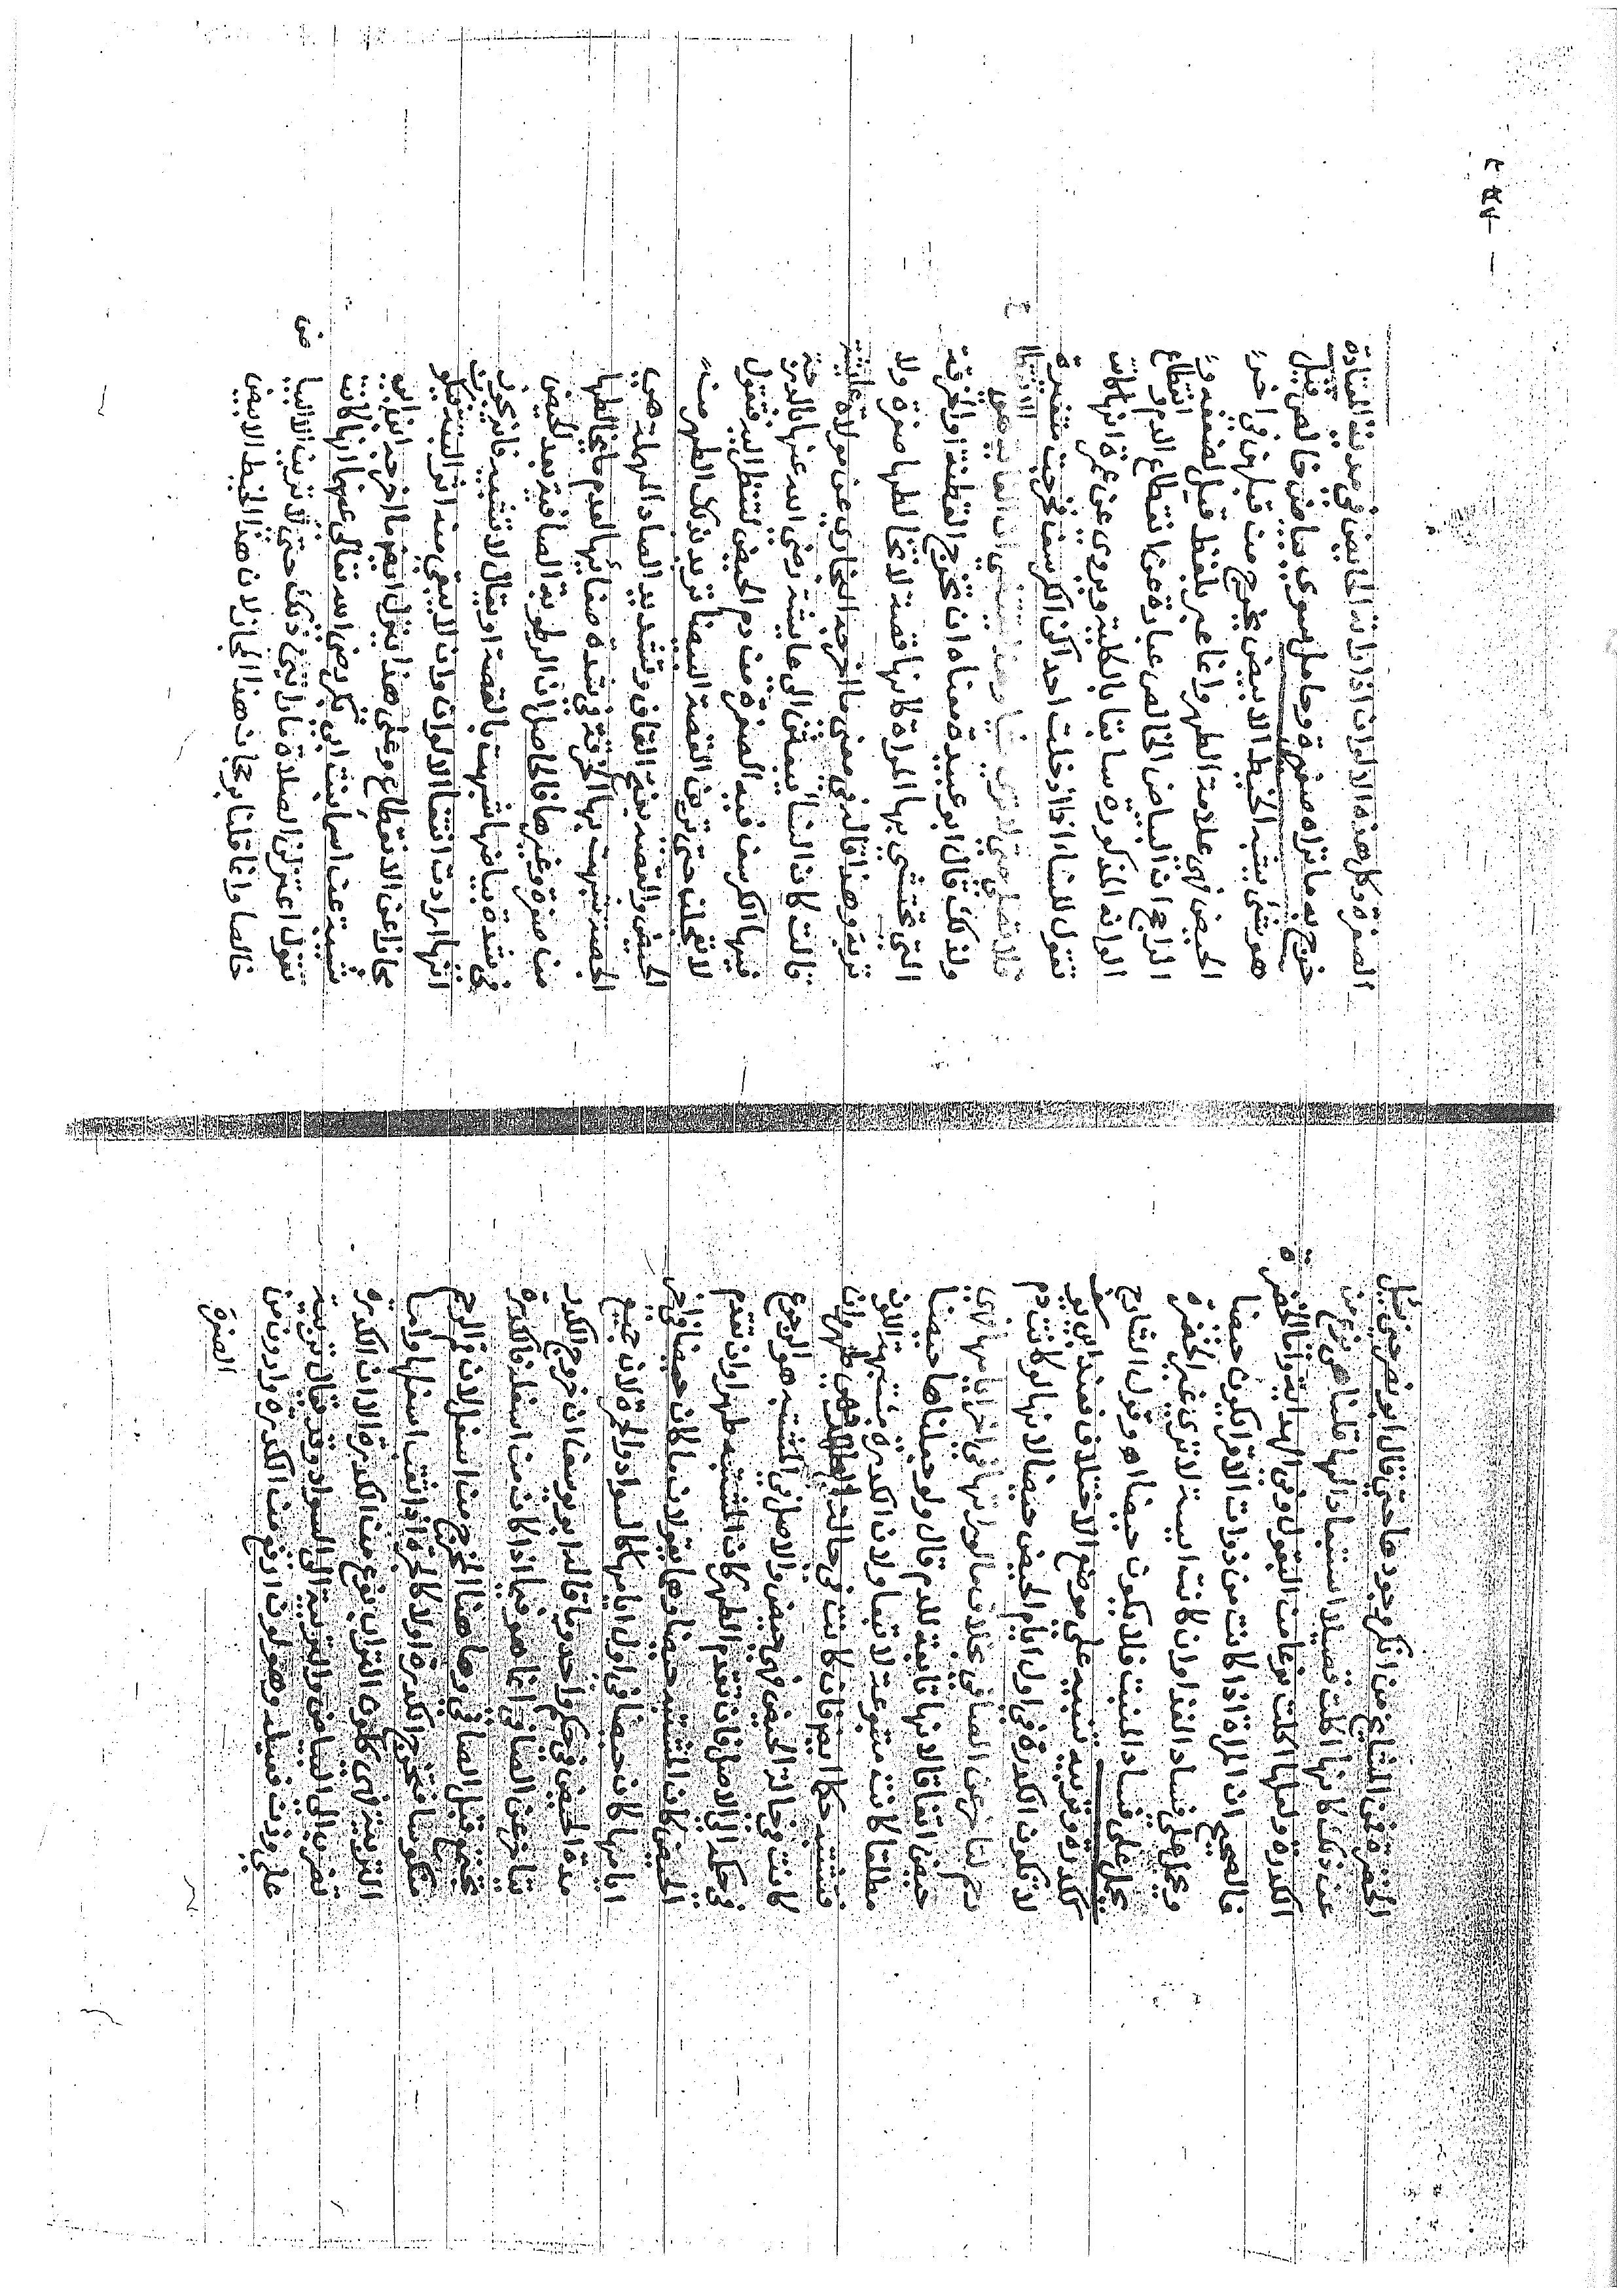 الخضرة فمن المشايخ من انكر وجودها حتى قال ابو نصر حين سئل
عن ذلك كانها اكلت فصيلا استبعادا لها قلنا هي نوع من
الكدرة ولعلها اكلت نوعا من البقول وفي الهداية واما الخضرة
فالصحيح ان المراة اذا كانت من ذوات الاقرا يكون حيضا
ويحمل على فساد الغذا وان كانت ايسة لا ترى غير الخضرة
يحمل على فساد المنبت فلا يكون حيضا اهـ وقول الشارح
ككدرة وتربية تنبيه على موضع الاختلاف فعند ابي يوسف
لا تكون الكدرة في اول ايام الحيض حيضا لانها لو كانت دم
رحم لتاخر عن الصافي بخلاف مالو راتها في اخر ايامها فهي
حيض اتفاقا لانها تابعة للدم قال ولو جعلناها حيضا
مطلقا كانت متبوعة لا تبعا ولان الكدرة مشتبهة اللون
فتشتبه حكما ايضا فان كانت في حالة الطهر فهي طهر وان
كانت في حالة الحيض فهي حيض والاصل في المشتبه هو الرجوع
في حكمه الى الاصل فان تقدم الطهر كان المشتبه طهرا وان تقدم
الحيض كان المشتبه حيضا وهما يقولان ما كان حيضا في اخر
ايامها كان حيضا في اول ايامها كالسواد والحمرة لان جميع
مدة الحيض في حكم واحد وما قاله ابو يوسف ان خروج الكدر
يتاخر عن الصافي انما هو فيما اذا كان من اسفله فالكدرة
تخرج قبل الصافي وهاهنا المخرج من اسفل لان فم الرحم
منكوسا فتخرج الكدرة اولا كالجرة اذا ثقب اسفلها واما
التربية فهي كلون التراب نوع من الكدرة الا ان الكدرة
تضرب الى البياض والتربية الى السواد وقد يقال تربية
على وزن فعيلة وهو لون من الكدرة وادون من
الصفرة
الصفرة وكل هذه الالوان اذا راته الحايض في مدته المعتادة
خرج به ما تراه صغيرة وحامل سوى بياض خالص قيل
هو شئ يشبه الخيط الابيض يخرج من قبلهن في اخر
الحيض فهي علامة الطهر وانما عبر بلفظ قيل لضعفه و
الراجح ان البياض الخالص عبارة عن انقطاع الدم وانقطاع
الوانه المذكورة سابقا بالكلية ويروى عن عمرة انها كانت
تقول للنساء اذا ادخلت احداكن الكرسف فخرجت متغيرة
فلا تصلي حتى لا ترى شيا وهذا يقتضي ان الغاية هي الانقطاع
ولذلك قال ابو عبيدة معناه ان تخرج القطنة او الخرقة
التي تحتشي بها المراة كانها قصة لا تخالطها صفرة ولا
تربة وهذا قاله في معنى ما اخرجه البخاري عن مولاة عائشة
قالت كان النسا يبعثن الى عايشة رضي الله عنها بالدرجة
فيها الكرسف فيه الصفرة من دم الحيض لتنظر اليه فتقول
لا تعجلن حتى ترين القصة البيضا تريد بذلك الطهر من
الحيض والقصة بفتح القاف وتشديد الصاد المهملة هي
الجصة شبهت بها الخرقة في شدة صفائها لعدم ما يخالطها
من صفرة وغيرها فالحاصل ان الرطوبة الصافية بعد الحيض
في شدة بياضها شبهت بالقصة او يقال لا تشبيه فانه يكون
انها ارادت انتفا الالوان وان لا يبقى منه اثر البتة فيكون
مجازا عن الانقطاع وعلى هذا يتنزل ايضا ما اخرجه ابن ابي
شيبة عن اسما بنت ابي بكر رضي الله تعالى عنهما انها كانت
تقول اعتزلن الصلاة ما رايتن ذلك حتى لا ترين الا البياض
خالصا وانما قلنا برجحان هذا المجاز لان هذا الخيط الابيض